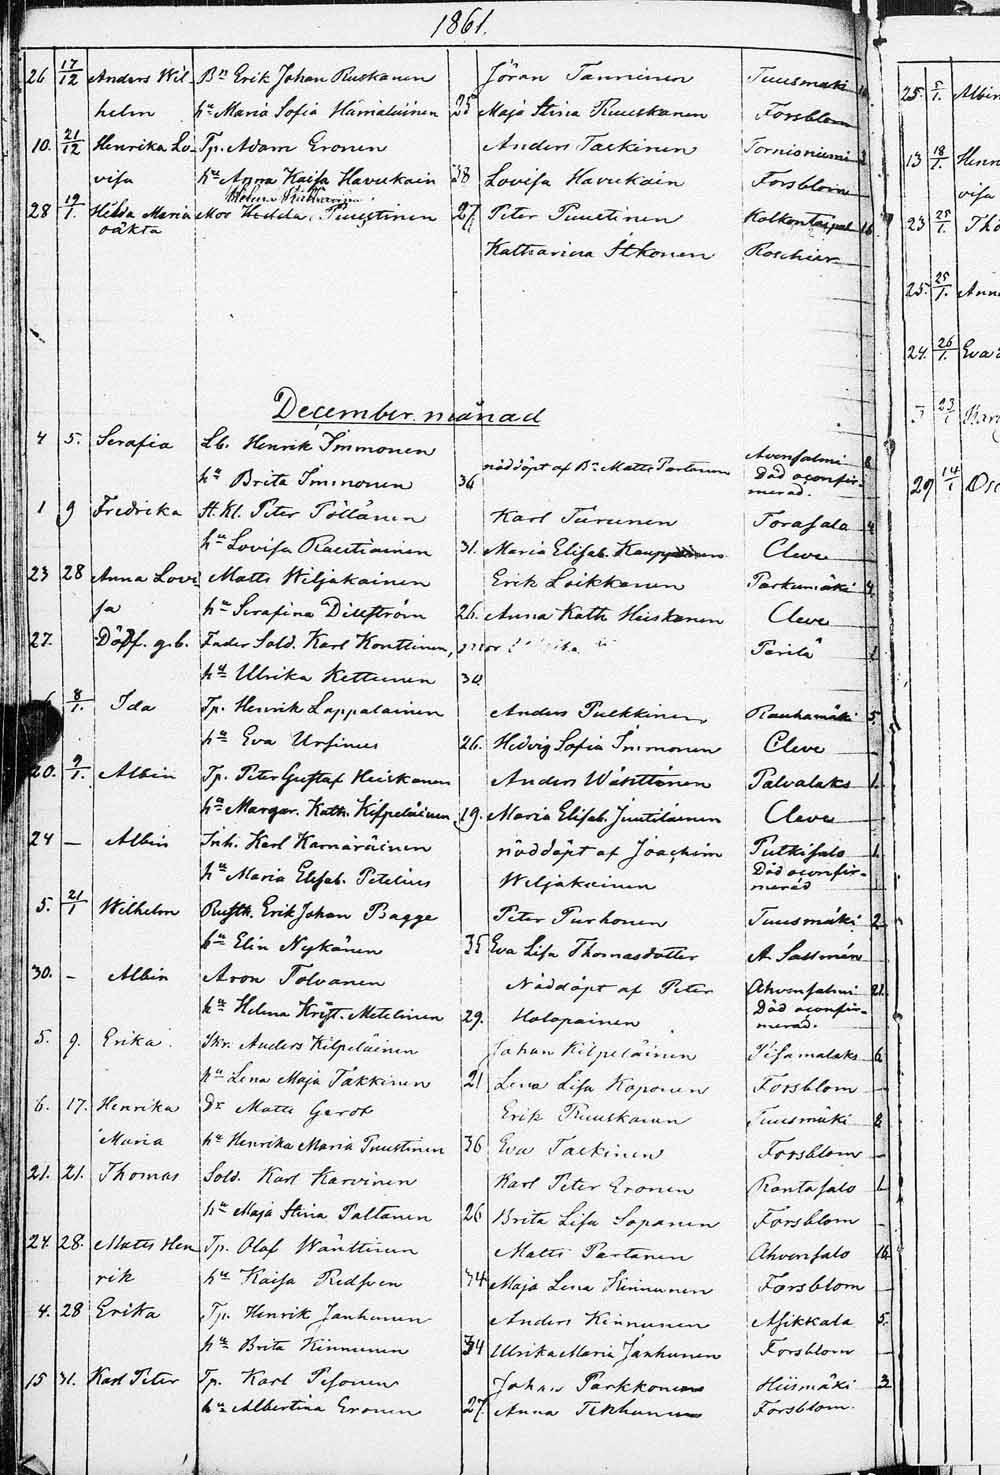 1861.
26 17/12 Anders Wil- Bn Erik Johan Ruskanen Jöran Tanninen Tuusmäki
helm hu Maria Sofia Hämäläinen 25 Maja Stina Ruuskanen Forsblom
10. 21/12 Henrika Lo- Tp. Adam Eronen Anders Taskinen Tornioniemi 2
visa hu Anna Kaisa Havukain 38 Lovisa Havukain Forsblom
28 19/1. Hilda Maria Mor Hedda Puustinen 27 Peter Puustinen Kolkontaipal 16
oäkta Katharina Itkonen Roschier
December månad
4 5. Serafia Lb. Henrik Immonen
hu Brita Immonen 36 nöddöpt af Bn Matts Partanen Avensalmi 8
Död oconfir-
merad.
1 9 Fredrika St. Kl. Peter Pöllänen Karl Turunen Torasalo 4
hu Lovisa Rautiainen 31. Maria Elisab. Kauppinen Cleve
23 28 Anna Lovi Matts Wiljakainen Erik Loikkanen Parkumäki 4
sa hu Serafina Dillström 26. Anna Kath Hiiskanen Cleve
27. Dödf. g.b. Fader Sold. Karl Konttinen, mor Parila 1
hu Ulrika Kettunen 30
8/1. Ida Tp. Henrik Lappalainen Anders Pulkkinen Rauhamäki 5.
hu Eva Ursinus 26. Hedvig Sofia Immonen Cleve
20. 9/1. Albin Tp. Peter Gustaf Heiskanen Anders Wänttönen Palvalaks 1.
hu Margar. Kath. Kilpeläinen 19. Maria Elisab. Juutilainen Cleve
24 — Albin Inh. Karl Kamäräinen nöddöpt af Joachim Putkisalo 1.
hu Maria Elisab. Petelius Weljakainen Död oconfir-
merad
5. 21/1 Wilhelm Rusth. Erik Johan Bagge Peter Purhonen Tuusmäki 2
hu Elin Nykänen 35 Eva Lisa Thomasdotter A. Sallmén
30. - Albin Aron Tolvanen Nöddöpt af Peter Ahvensalmi 21.
hu Helena Krist. Metelinen 29. Holopainen Död oconfir-
merad.
5. 9. Erika Skr. Anders Kilpeläinen Johan Kilpeläinen Pisamalaks 6
hu Lena Maja Takkinen 21 Lena Lisa Koponen Forsblom
6. 17. Henrika Dr Matts Gerot Erik Ruuskanen Tuusmäki 8
Maria hu Henrika Maria Puustinen 36 Eva Taskinen Forsblom —
21. 21. Thomas Sold. Karl Karvinen Karl Peter Eronen Rantasalo 1
hu Maja Stina Paltanen 26 Brita Lisa Sopanen Forsblom —
24 28. Matts Hen Tp. Olof Wänttinen Matts Partanen Ahvensalo 16
rik hu Kaisa Redsven 34 Maja Lena Kinnunen Forsblom —
4. 28 Erika Tp. Henrik Janhunen Anders Kinnunen Asikkala 5.
hu Brita Kinnunen 34 Ulrika Maria Janhunen Forsblom —
15 31. Karl Peter Tp. Karl Pesonen Johan Parkkonen Hiismäki 3
hu Albertina Eronen 27. Anna Forsblom.
25. 5/1. Albin
13 18/1. Henr
visa
23 25/1. Tho
25. 25/1. Anna
24. 26/1. Eva
23/1
29 14/1